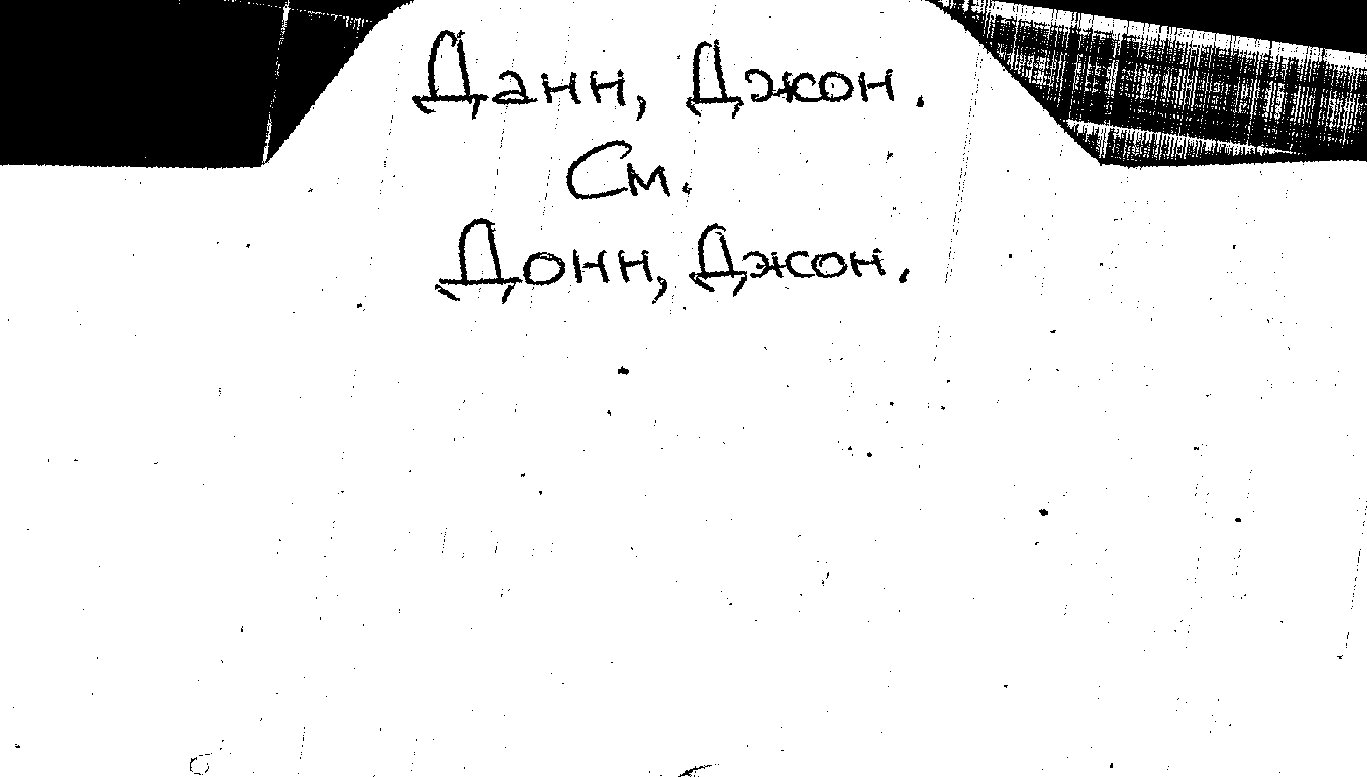 Данн, Джон.
См.
Донн, Джон.